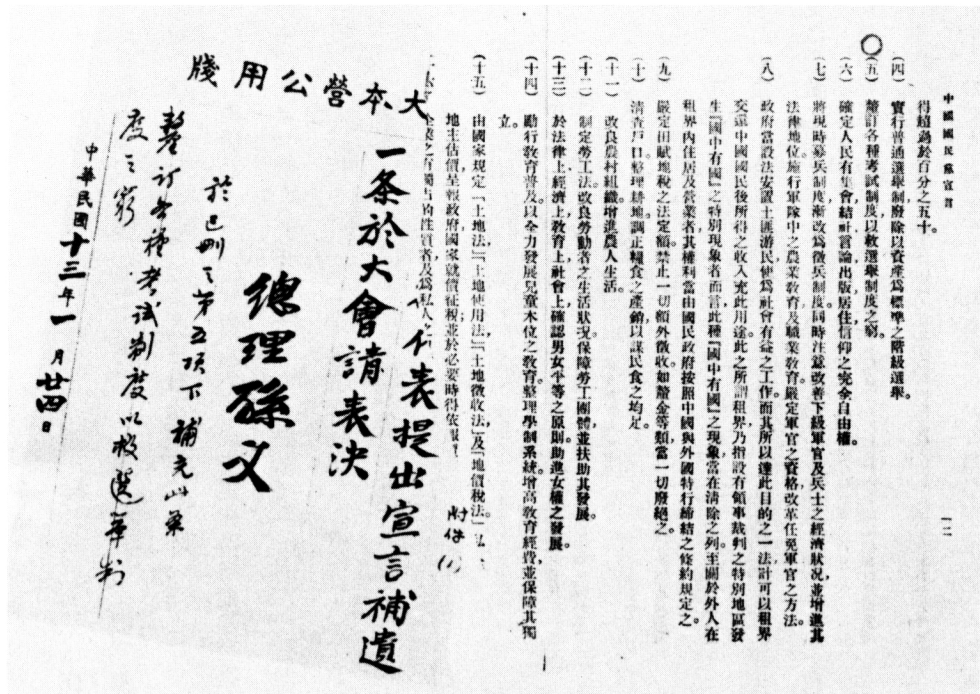 中國國民黨宣言
一二
得超過於百分之五十。
(四) 實行普通選舉制廢除以資產為標準之階級選舉。
(五) 釐訂各種考試制度以救選舉制度之窮。
(六) 確定人民有集會結社言論出版居住信仰之完全自由權。
(七) 將現時募兵制度漸改為徵兵制度同時注意改善下級軍官及兵士之經濟狀況並增進其
法律地位施行軍隊中之農業教育及職業教育嚴定軍官之資格改革任免軍官之方法。
(八) 政府當設法安置土匪游民使為社會有益之工作而其所以達此目的之一法計可以租界
交還中國國民後所得之收入充此用途此之所謂租界乃指設有領事裁判之特別地區發
生『國中有國』之特別現象者而言此種『國中有國』之現象當在清除之列至關於外人在
租界內住居及營業者其權利當由國民政府按照中國與外國特行締結之條約規定之。
(九) 嚴定田賦地稅之法定額禁止一切額外徵收如釐金等類當一切廢絕之。
(十) 清查戶口整理耕地調正糧食之產銷以謀民食之均足。
(十一) 改良農村組織增進農人生活。
(十二) 制定勞工法改良勞動者之生活狀況保障勞工團體並扶助其發展。
(十三) 於法律上經濟上教育上社會上確認男女平等之原則助進女權之發展。
(十四) 勵行教育普及以全力發展兒童本位之教育整理學制系統增高教育經費並保障其獨
立。
(十五) 由國家規定『土地法』『土地使用法』『土地徵收法』及『地價稅法』
地主估價呈報政府國家就價征稅並於必要時得依報
企業之有獨占的性質者及為私人之
附件(1)
大本營公用牋
代表提出宣言補遺
一条於大會請表決
總理孫文
於已刪之第五項下補充此条
釐訂各種考試制度以救選舉制
度之窮
中華民國十三年一月廿四日